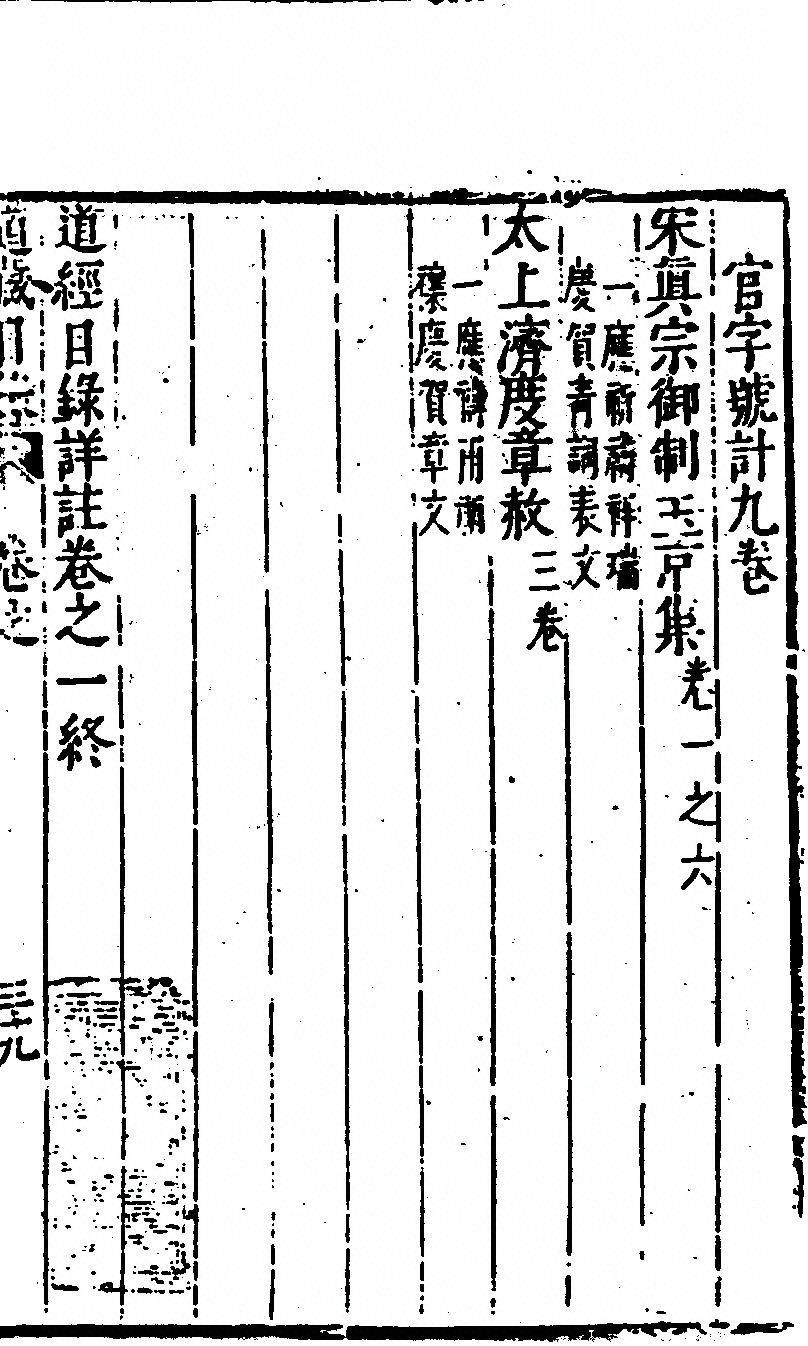 官字號計九卷
宋眞宗御制玉京集卷一之六
一應祈禱祥瑞
慶賀青詞表文
太上濟度章赦三卷
一應禱雨
禳慶賀章文
道經目錄詳註卷之一終
道藏目錄 卷之 三十九